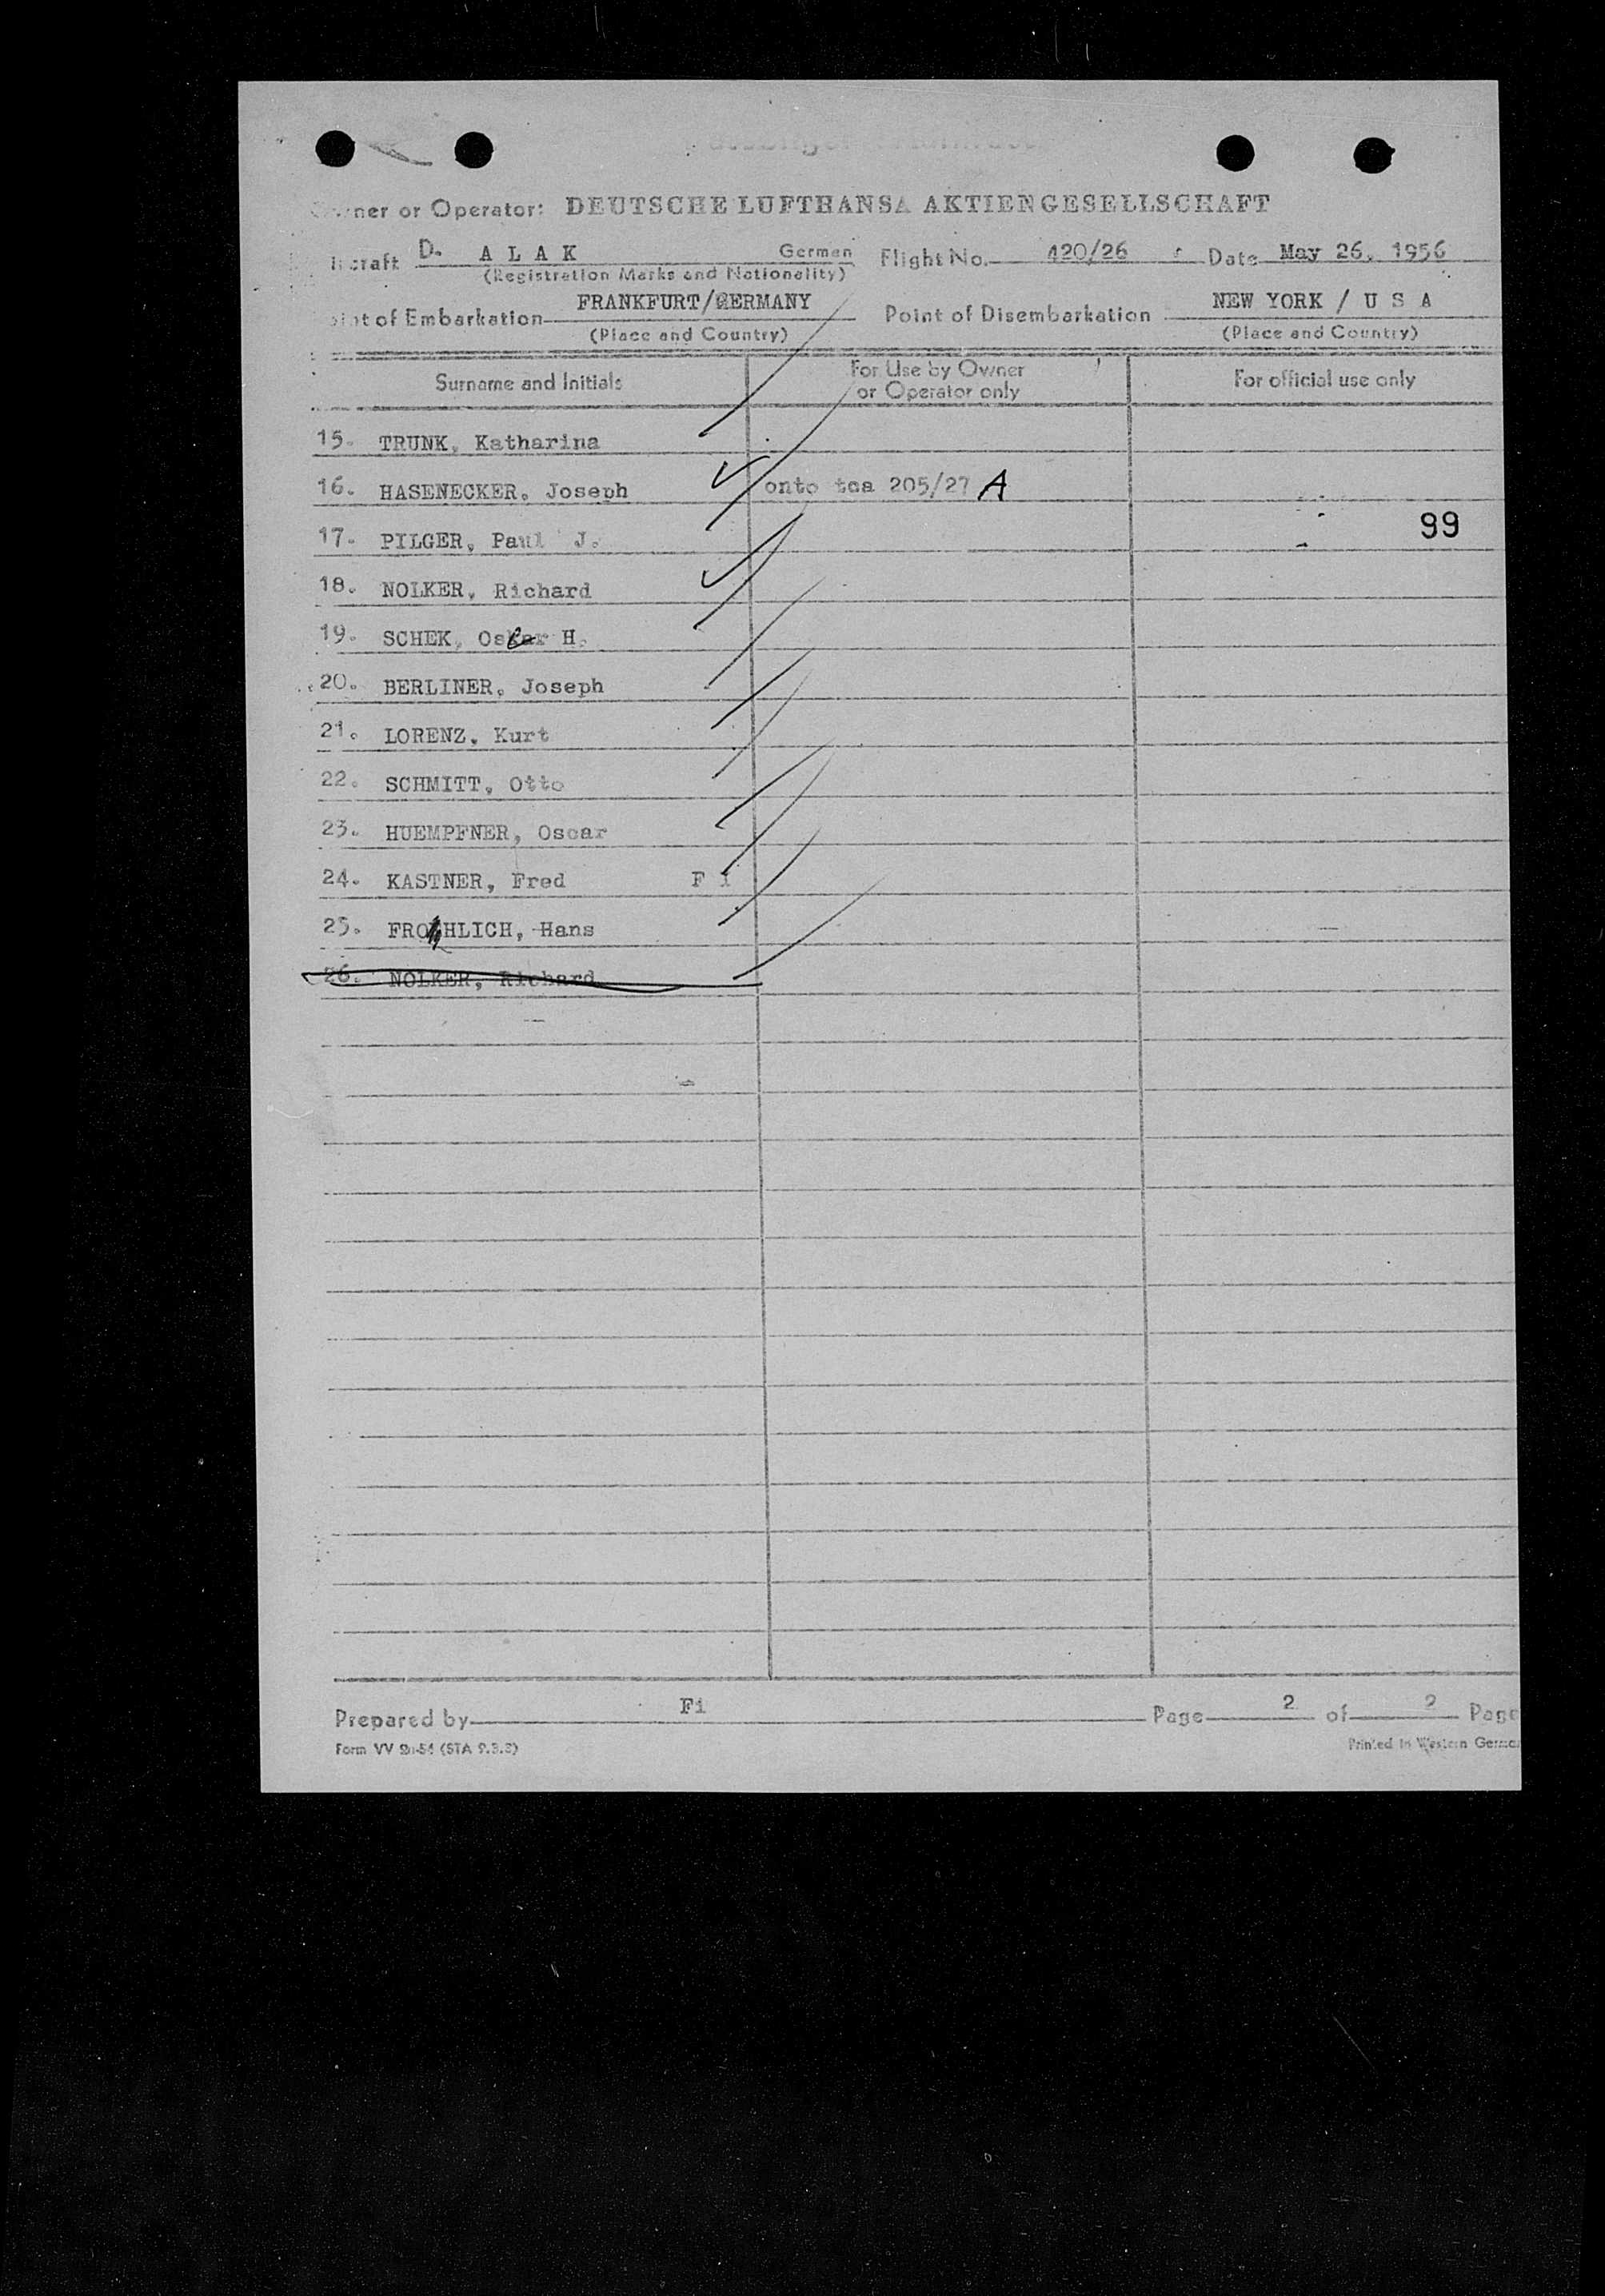 Passenger Manifest
Owner or Operator: DEUTSCHE LUFTHANSA AKTIENGESELLSCHAFT
ircraft D. A L A K German Flight No. 420/26 Date May 26, 1956
(Registration Marks and Nationality)
oint of Embarkation FRANKFURT/GERMANY Point of Disembarkation NEW YORK / U S A
(Place and Country) (Place and Country)
Surname and Initials For Use by Owner or Operator only For official use only
15. TRUNK, Katharina
16. HASENECKER, Joseph onto tca 205/27 A
17. PILGER, Paul J. 99
18. NOLKER, Richard
19. SCHEK, Oscar H.
20. BERLINER, Joseph
21. LORENZ, Kurt
22. SCHMITT, Otto
23. HUEMPFNER, Oscar
24. KASTNER, Fred F i
25. FROHLICH, Hans
26. NOLKER, Richard
Prepared by Fi Page 2 of 2 Page
Form VV 2u-54 (STA 9.3.3) Printed in Western Germa